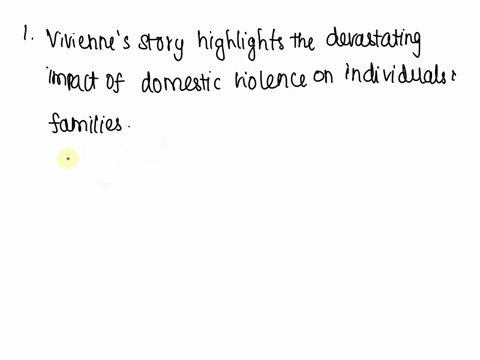 1. Vivienne's story highlights the devastating
impact of domestic violence on individuals &
families.